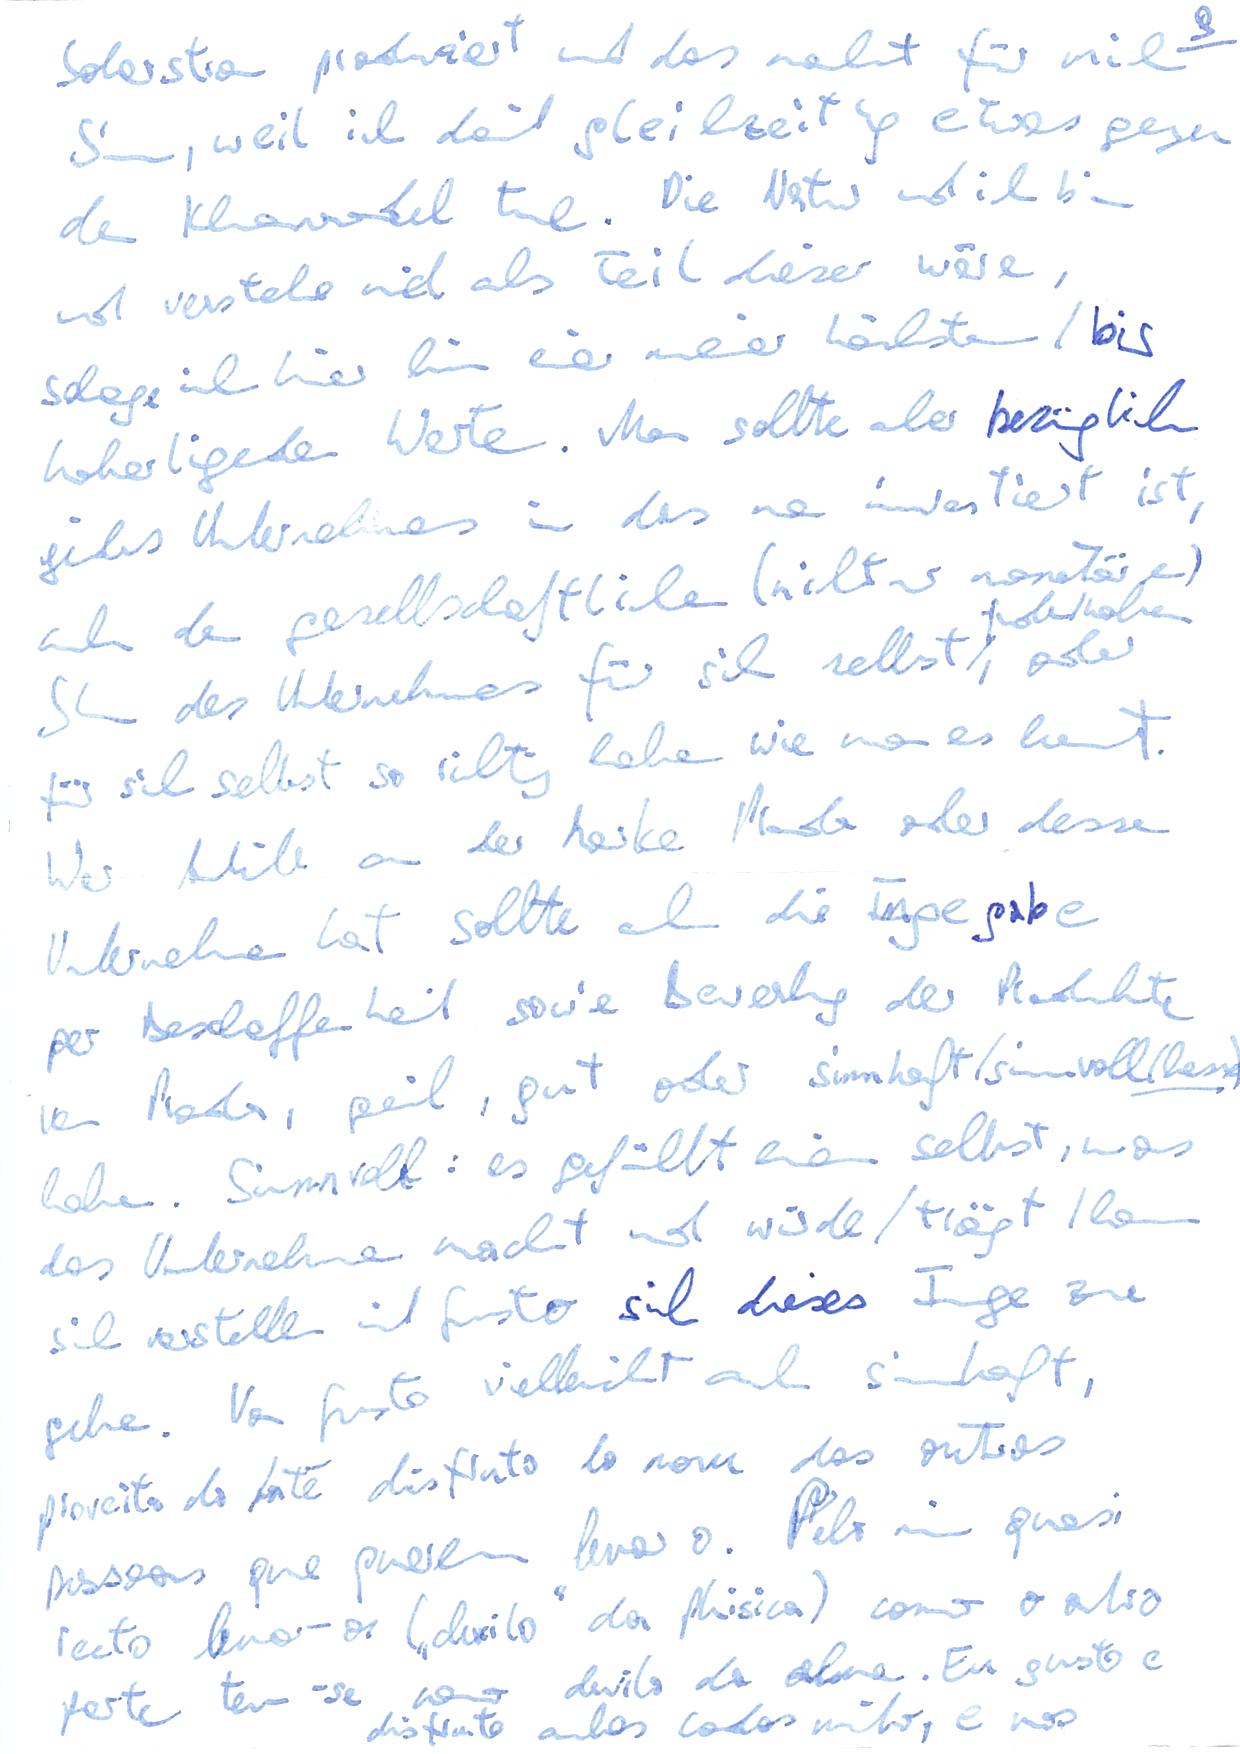 Solarstrom produziert und das macht für mich 9
Sinn, weil ich damit gleichzeitig etwas gegen
den Klimawandel tue. Die Natur und ich bin
und verstehe mich als Teil dieser wäre,
solange ich hier bin einer meiner höchsten / bis
Werte. Man sollte aber bezüglich
jedes Unternehmens in das man investiert ist,
auch den gesellschaftlichen (nicht nur monetären)
Sinn des Unternehmens für sich selbst, oder
für sich selbst so richtig haben wie man es kennt.
Wer Anteile an der Marke Prada oder dessen
Unternehmen hat sollte auch die
per Beschaffenheit sowie Bewertung der Produkte
von Prada, geil, gut oder sinnhaft/sinnvoll
haben. Sinnvoll: es gefällt einem selbst, was
das Unternehmen macht und würde/trägt/kann
sich vorstellen mit gusto sich dieses Ense zu
gehen. Von gusto vielleicht auch sinnhaft,
proveito do até disfruto lo das outras
pessoas que querem levar o. Pelo mim quasi
levar-os („ da phisica) como o outro
parte tem-se como da alma. Eu gusto e
disfruto ambos cados mito, e nos